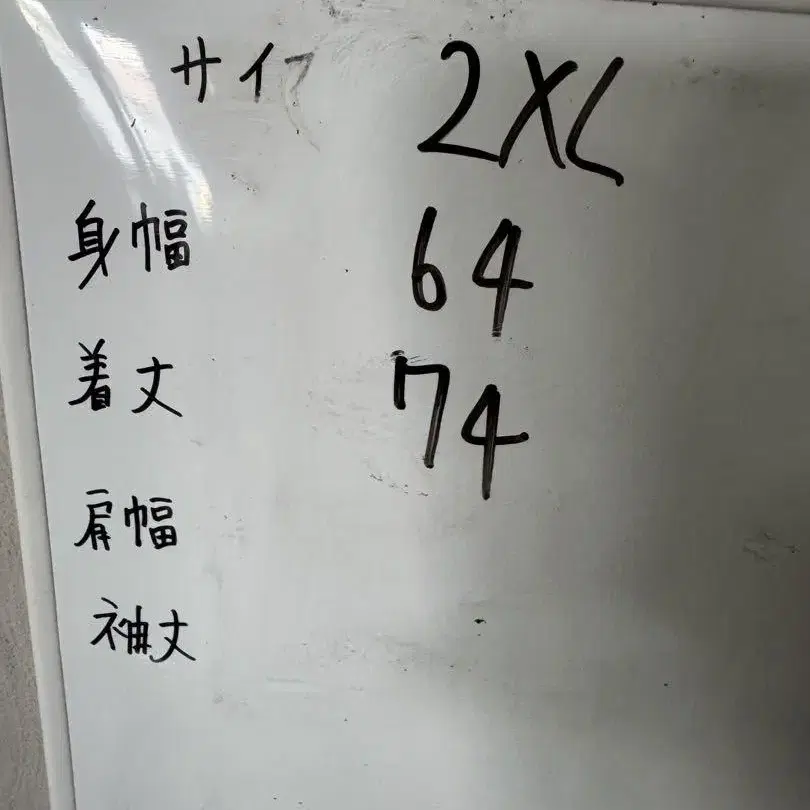 サイズ 2XL
身幅 64
着丈 74
肩幅
袖丈